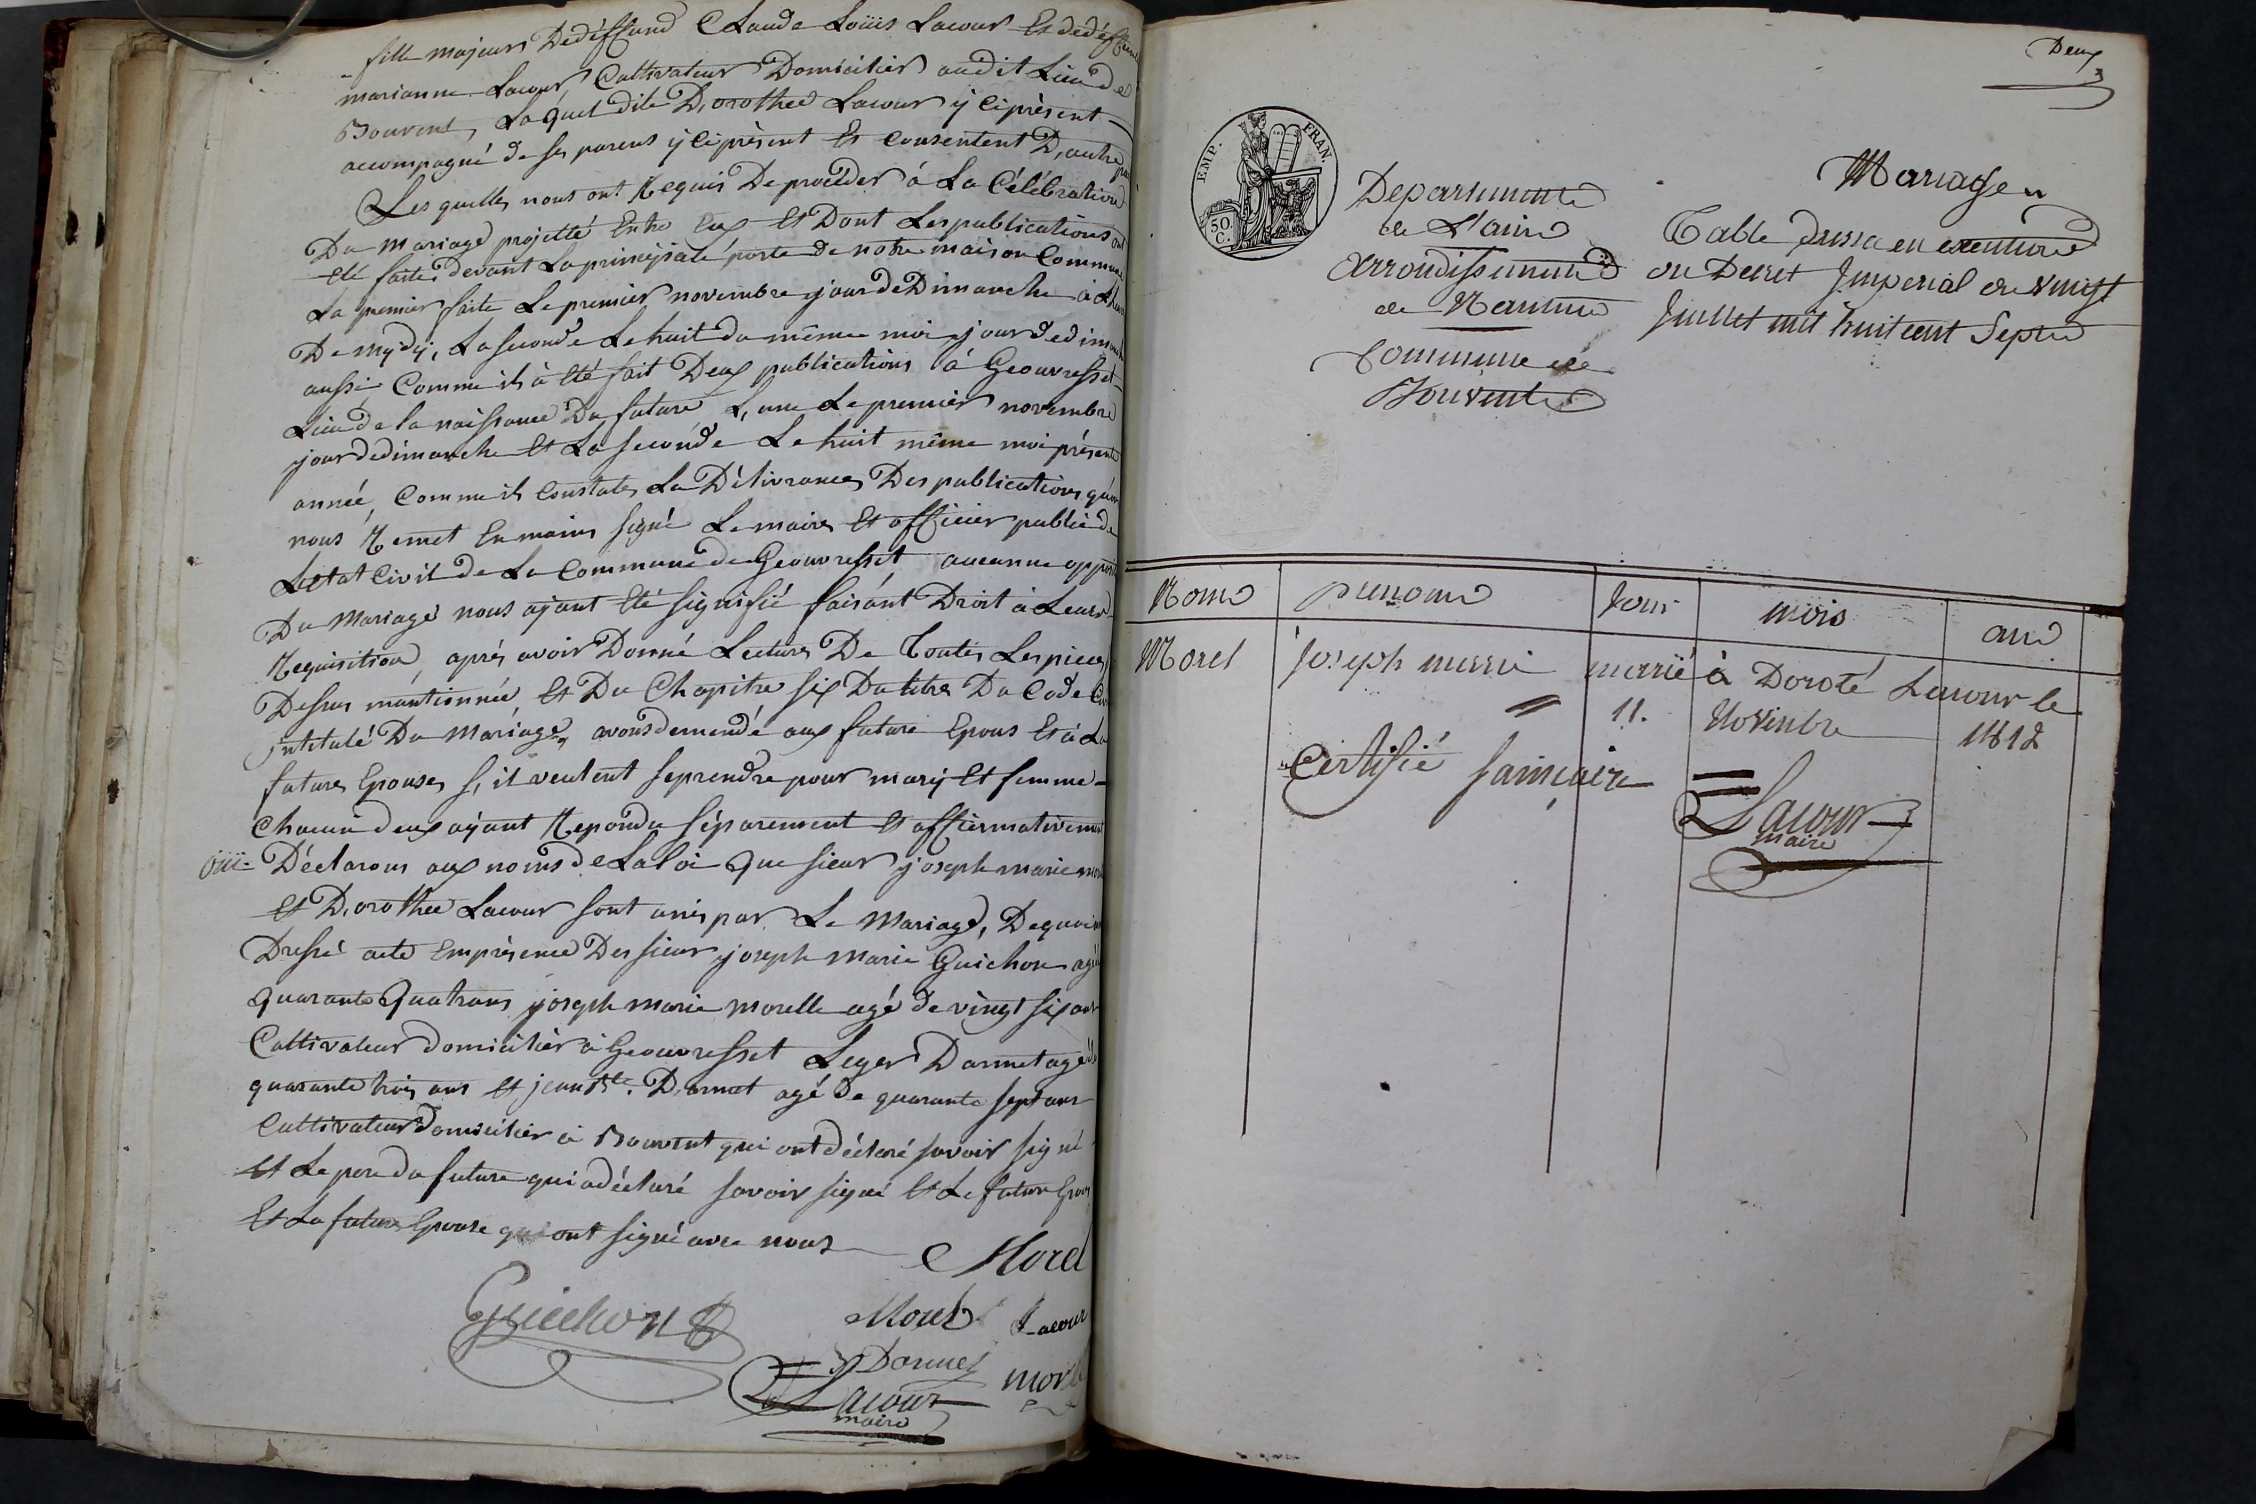 fille majeurs Dedéffund Claude Loüis Lacour Et dedéffun
marianne Lacour Cultivateur Domicilier audit Lieu de
Bouvent, La quel dite D,orothee Lacour ÿ ci présent
accompagné de ses parens ÿ ci présent Et consentent D,autre par
Les quelles nous ont Requis De procéder à La Célébration
Du mariage projetté Entre Eux Et Dont Les publications ont
été faite, devant La principale porte de notre maison Commune
La premier faite Le premier novembre jour de Dimanche à L
De mÿdÿ, La seconde Le huit du même moi jour de dimanche
aussi Comme ils à été fait Deux publications à Geouvresset
Lieu de la naissance Du future L,une Le premier novembre
jour de dimanche Et La seconde Le huit même moi présente
année, Comme ils Constate, La Délivrance, Des publications qu'on
nous Remet En mains signé Le maire Et officier public de
Létat Civil de La Commune de Geouvresset aucunne opposi
Du Mariage nous ajant été signifié faisant Droit à Leur
Requisition, après avoir Donné Lecture De Toutes Les pieces
Dessus mantionnée, Et Du Chapitre six Du titre Du Code Ci
intitulé Du Mariage, avons demendé aux future Epous Et à La
future, Epouse, s,il veulent se prendre pour marÿ Et femme
Chacun deux aÿant Repondu séparement Et affirmativement
oüi Déclarons aux noms de La loi que sieur joseph marie mor
Et D,orothee Lacour sont unis par Le Mariage, De quoi
Dressé acte En présence Des sieur joseph Marie Guichon agé
quarante quatrans joseph marie morelle agé de vingt six ans
Cultivateur domicilier à Geouvresset Leger Darmet agé de
quarante trois ans Et jean Bte. Darmet agé de quarante sept ans
Cultivateur domicilier à Bouvent qui ont déclaré savoir signé
Et Le pere du future qui a déclaré savoir signé Et Le future Epous
Et La future Epouse qui ont signé avec nous
Morel
Guichon
Morel Lacour
Darmet
Lacour
maire
morel
Deux
EMP. FRAN.
50. C.
Departement
de L'ain
Arrondissement
de Nantua
Commune de
Bouvent
Mariage
Table dressée en exécution
du Decret Imperial du vingt
Juillet mil huit cent Sept
Nom prenom Jour mois an
Morel Joseph marie marié à Doroté Lacour le
" 11. Novembre 1812
Certifié sainçaire
Lacour
maire